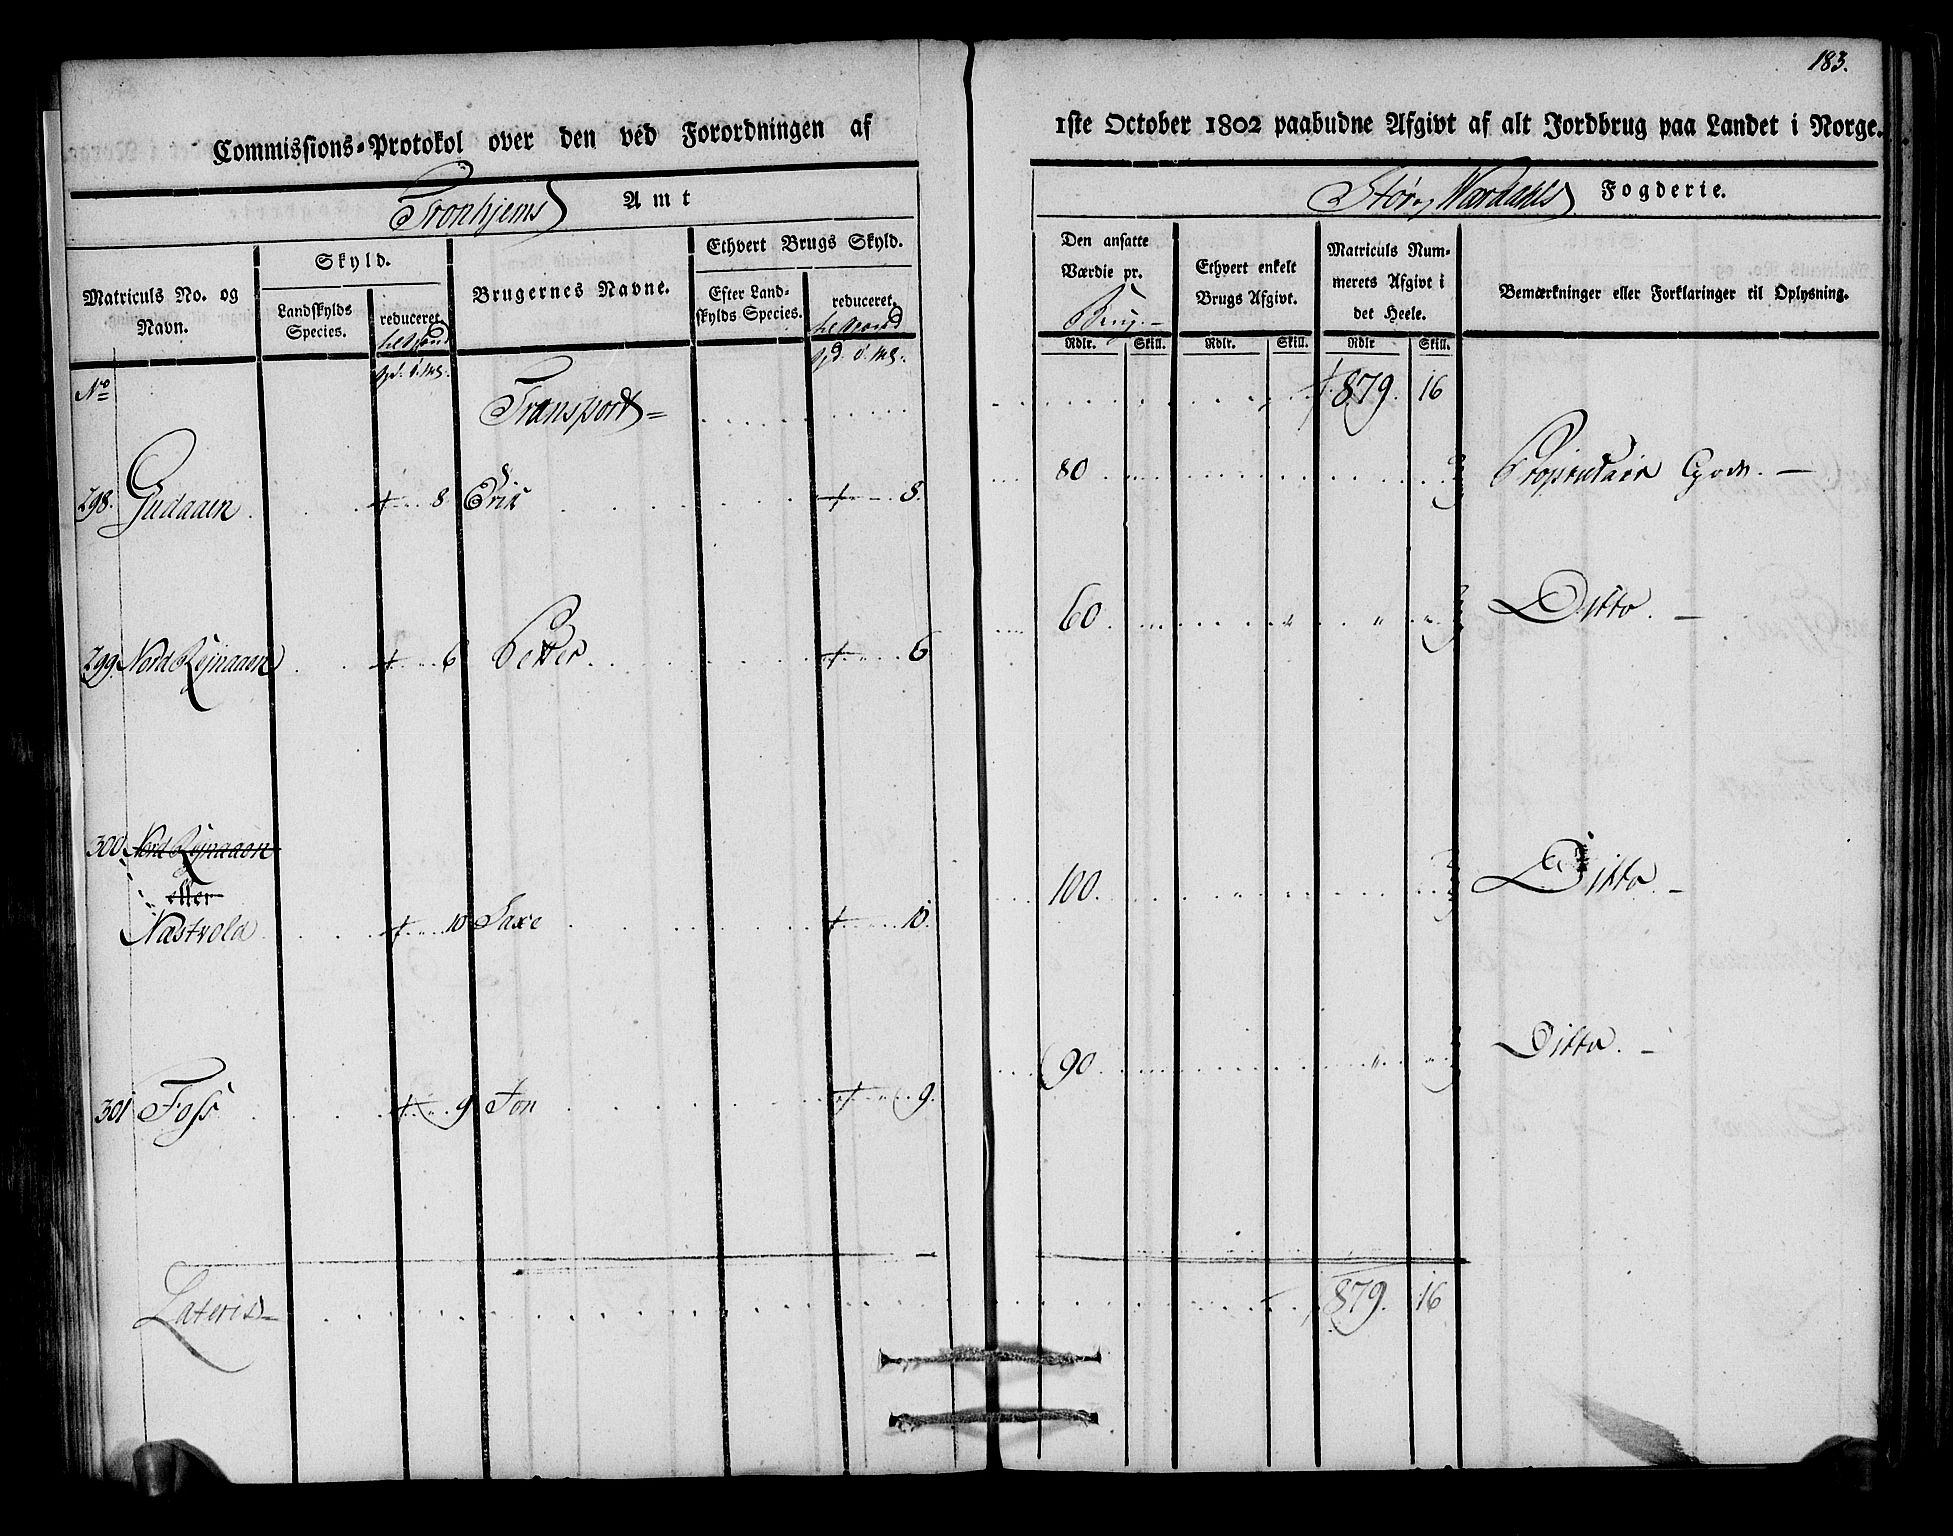 183.
Commissions-Protokol over den ved Forordningen af 1ste October 1802 paabudne Afgivt af alt Jordbrug paa Landet i Norge.
Tronhjems Amt
Stør og Værdahls Fogderie.
Matriculs No. og Navn.
Skyld.
Landskylds Species.
reduceret
Brugernes Navne.
Ethvert Brugs Skyld.
Efter Landskylds Species.
reduceret
Den ansatte Værdie pr. Brug.
Ethvert enkelt Brugs Afgivt.
Matriculs Nummerets Afgivt i det Heele.
Bemærkninger eller Forklaringer til Oplysning.
Rdlr. Skill. Rdlr. Skill. Rdlr Skill.
No
Transport = 879. 16
298. Gudaaen 8 Erik 8. 80 Proprietair Gods. —
299. Nord Rejnaaen 6 Petter 6 60 Ditto. —
300 Nord Rejnaaen
eller
Næstvold 10 Saxe 10. 100. Ditto. —
301 Foss 9 Jon 9. 90 Ditto. —
Lateris 879. 16